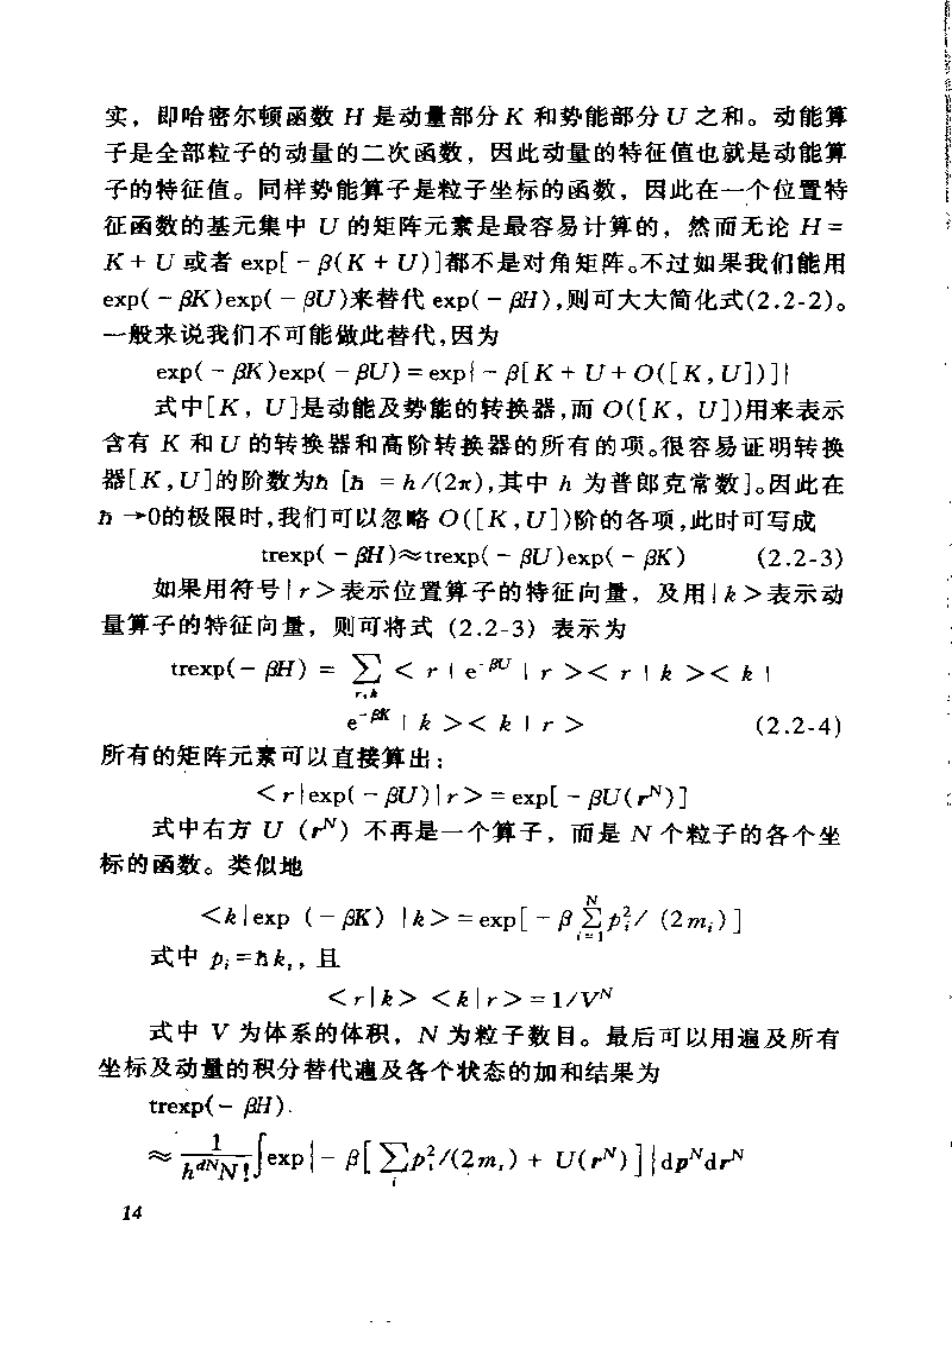 实，即哈密尔顿函数 H 是动量部分 K 和势能部分 U 之和。动能算
子是全部粒子的动量的二次函数，因此动量的特征值也就是动能算
子的特征值。同样势能算子是粒子坐标的函数，因此在一个位置特
征函数的基元集中 U 的矩阵元素是最容易计算的，然而无论 H =
K + U 或者 exp[ - β(K + U)]都不是对角矩阵。不过如果我们能用
exp( - βK)exp( - βU)来替代 exp( - βH),则可大大简化式(2.2-2)。
一般来说我们不可能做此替代,因为
exp( - βK)exp( - βU) = exp{ - β[K + U + O([K,U])]}
式中[K，U]是动能及势能的转换器,而 O([K，U])用来表示
含有 K 和 U 的转换器和高阶转换器的所有的项。很容易证明转换
器[K,U]的阶数为ħ [ħ = h/(2π),其中 h 为普郎克常数]。因此在
ħ →0的极限时,我们可以忽略 O([K,U])阶的各项,此时可写成
trexp( - βH)≈trexp( - βU)exp( - βK) (2.2-3)
如果用符号|r>表示位置算子的特征向量，及用|k>表示动
量算子的特征向量，则可将式（2.2-3）表示为
trexp(- βH) = ∑ < r | e^{-βU} | r >< r | k >< k |
r,k
e^{-βK} | k >< k | r > (2.2-4)
所有的矩阵元素可以直接算出：
<r|exp( - βU)|r> = exp[ - βU(r^N)]
式中右方 U（r^N）不再是一个算子，而是 N 个粒子的各个坐
标的函数。类似地
<k|exp（- βK）|k> = exp[ - β∑_{i=1}^{N} p_i^2/（2m_i）]
式中 p_i = ħk_i，且
<r|k> <k|r> = 1/V^N
式中 V 为体系的体积，N 为粒子数目。最后可以用遍及所有
坐标及动量的积分替代遍及各个状态的加和结果为
trexp(- βH)
≈ 1/(h^{dN}N!) ∫exp{- β[∑_i p_i^2/(2m_i) + U(r^N)]}dp^N dr^N
14